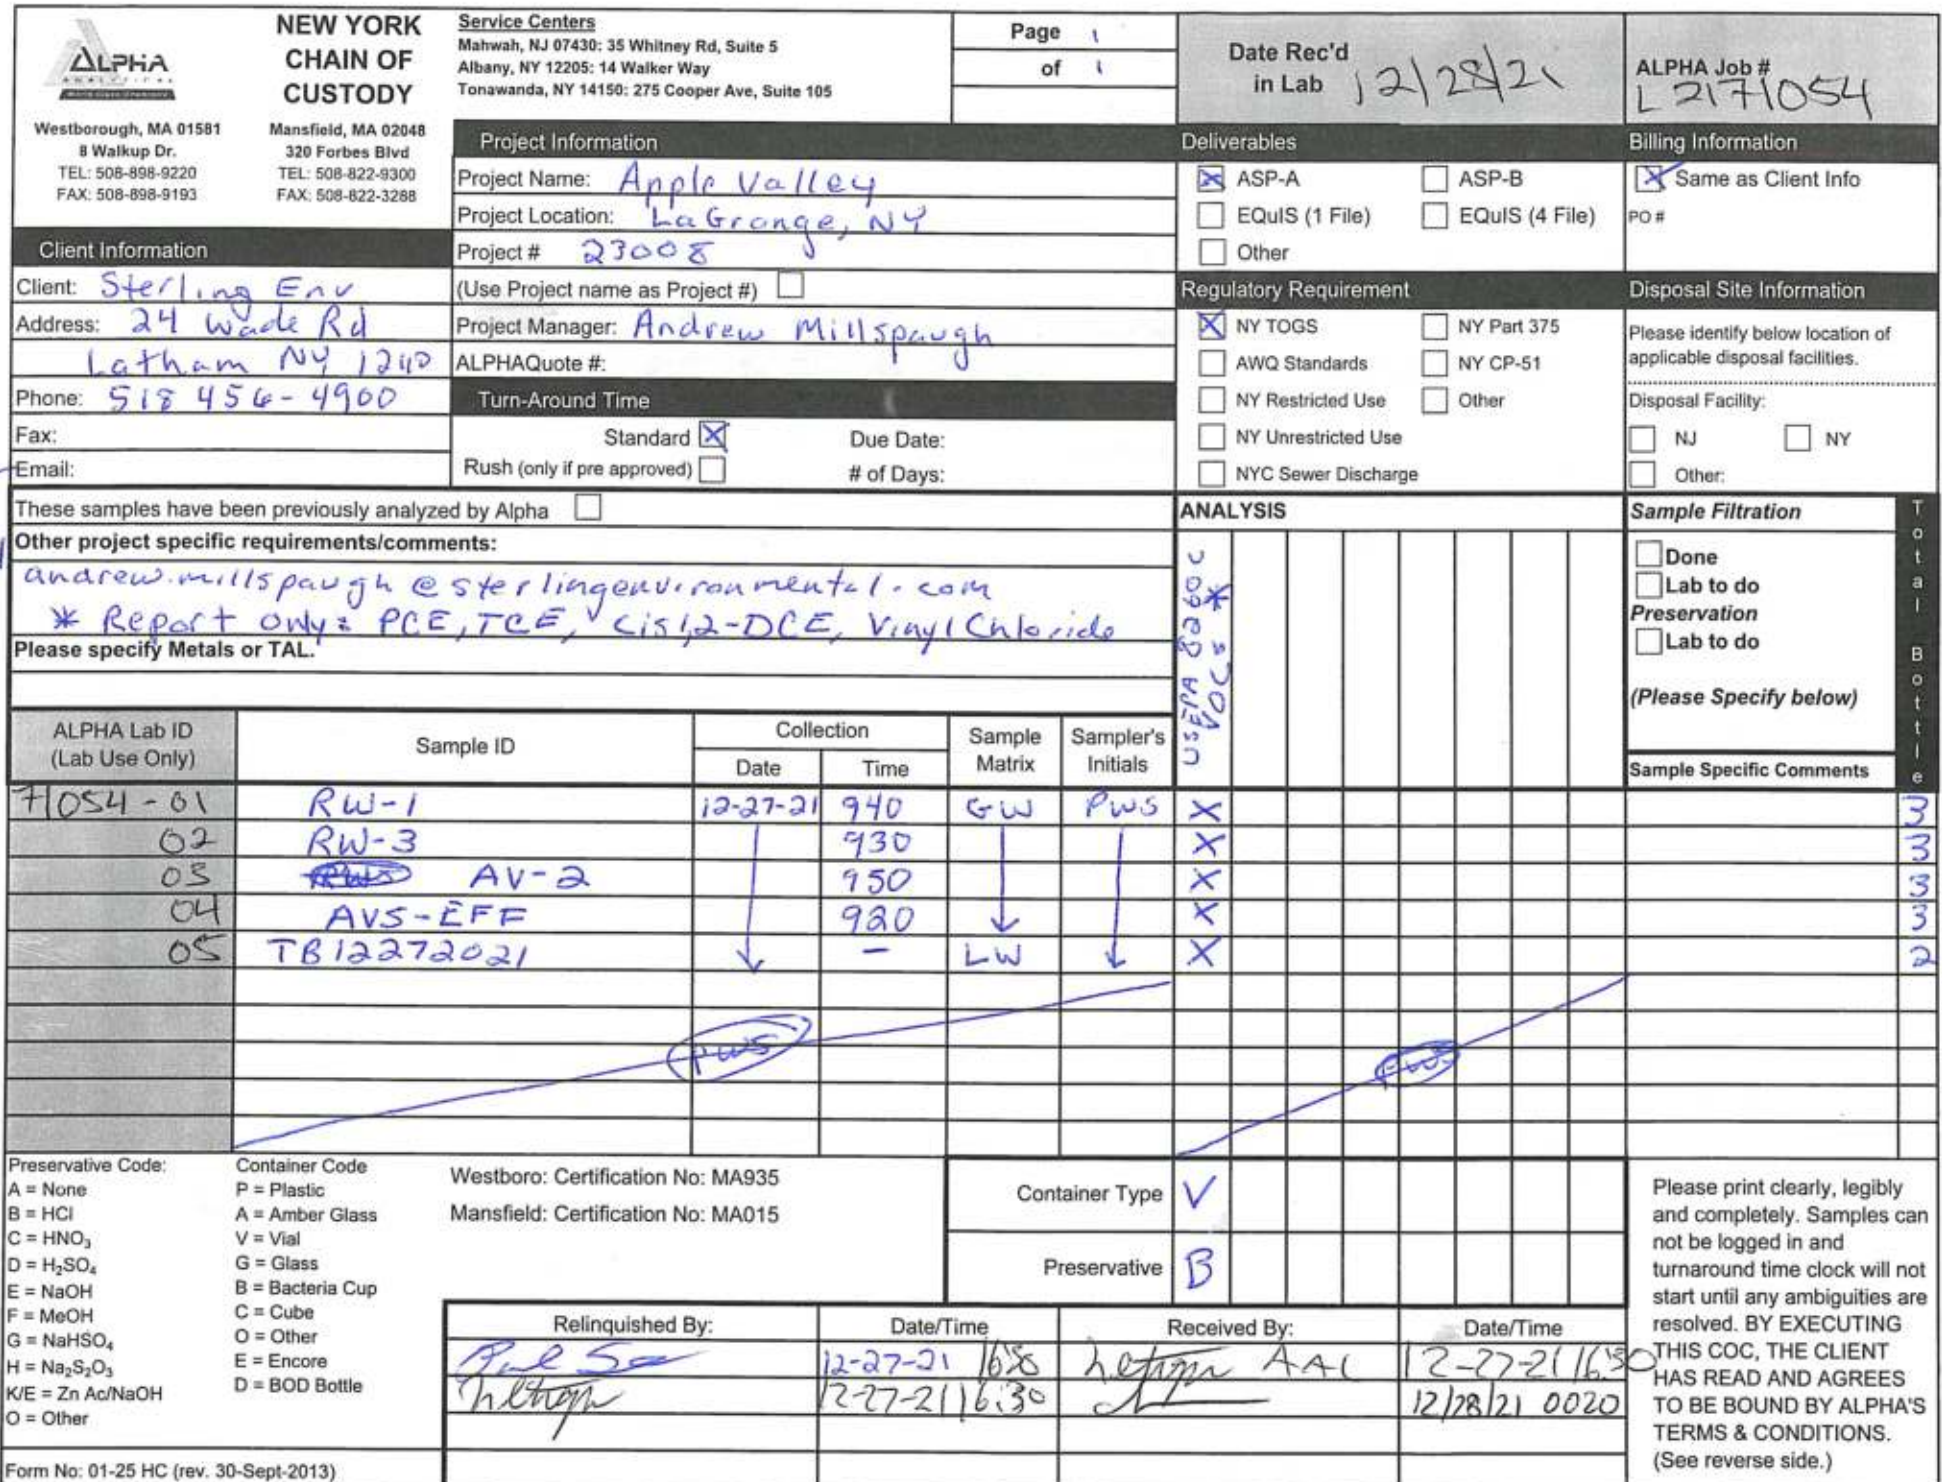 ALPHA
ANALYTICAL
NEW YORK
CHAIN OF
CUSTODY
Westborough, MA 01581
8 Walkup Dr.
TEL: 508-898-9220
FAX: 508-898-9193
Mansfield, MA 02048
320 Forbes Blvd
TEL: 508-822-9300
FAX: 508-822-3288
Service Centers
Mahwah, NJ 07430: 35 Whitney Rd, Suite 5
Albany, NY 12205: 14 Walker Way
Tonawanda, NY 14150: 275 Cooper Ave, Suite 105
Page 1
of 1
Date Rec'd
in Lab 12/28/21
ALPHA Job #
L2171054
Client Information
Client: Sterling Env
Address: 24 Wade Rd
Latham NY 12110
Phone: 518 456-4900
Fax:
Email:
Project Information
Project Name: Apple Valley
Project Location: LaGrange, NY
Project # 23008
(Use Project name as Project #)
Project Manager: Andrew Millspaugh
ALPHAQuote #:
Turn-Around Time
Standard X Due Date:
Rush (only if pre approved) # of Days:
Deliverables
X ASP-A ASP-B
EQuIS (1 File) EQuIS (4 File)
Other
Regulatory Requirement
X NY TOGS NY Part 375
AWQ Standards NY CP-51
NY Restricted Use Other
NY Unrestricted Use
NYC Sewer Discharge
Billing Information
X Same as Client Info
PO #
Disposal Site Information
Please identify below location of
applicable disposal facilities.
Disposal Facility:
NJ NY
Other:
These samples have been previously analyzed by Alpha
Other project specific requirements/comments:
andrew.millspaugh@sterlingenvironmental.com
* Report only: PCE, TCE, Cis1,2-DCE, Vinyl Chloride
Please specify Metals or TAL.
ANALYSIS
USEPA 8260C
VOCs *
Sample Filtration
Done
Lab to do
Preservation
Lab to do
(Please Specify below)
Total Bottle
ALPHA Lab ID
(Lab Use Only)
Sample ID
Collection
Date Time
Sample
Matrix
Sampler's
Initials
Sample Specific Comments
71054-01 RW-1 12-27-21 940 GW PWS X 3
02 RW-3 930 X 3
03 AV-2 950 X 3
04 AVS-EFF 920 X 3
05 TB12272021 - LW X 2
PWS PWS
Preservative Code:
A = None
B = HCl
C = HNO3
D = H2SO4
E = NaOH
F = MeOH
G = NaHSO4
H = Na2S2O3
K/E = Zn Ac/NaOH
O = Other
Container Code
P = Plastic
A = Amber Glass
V = Vial
G = Glass
B = Bacteria Cup
C = Cube
O = Other
E = Encore
D = BOD Bottle
Westboro: Certification No: MA935
Mansfield: Certification No: MA015
Container Type V
Preservative B
Relinquished By: Date/Time Received By: Date/Time
12-27-21 AAL 12-27-21 16:30
12-27-21 16:30 12/28/21 0020
Please print clearly, legibly
and completely. Samples can
not be logged in and
turnaround time clock will not
start until any ambiguities are
resolved. BY EXECUTING
THIS COC, THE CLIENT
HAS READ AND AGREES
TO BE BOUND BY ALPHA'S
TERMS & CONDITIONS.
(See reverse side.)
Form No: 01-25 HC (rev. 30-Sept-2013)